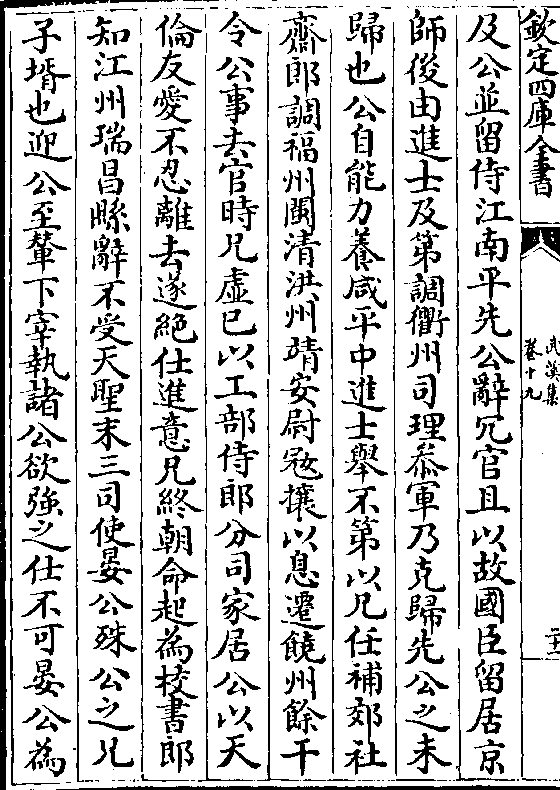 欽定四庫全書
武溪集
卷十九
及公並留侍江南平先公辭冗官且以故國臣留居京
師後由進士及第調衢州司理叅軍乃克歸先公之未
歸也公自能力養咸平中進士舉不第以兄任補郊社
齋郎調福州閩清洪州靖安尉冦攘以息遷饒州餘干
令公事去官時兄虛已以工部侍郎分司家居公以天
倫友愛不忍離去遂絕仕進意兄終朝命起為校書郎
知江州瑞昌縣辭不受天聖末三司使晏公殊公之兄
子壻也迎公至輦下宰執諸公欲強之仕不可晏公為